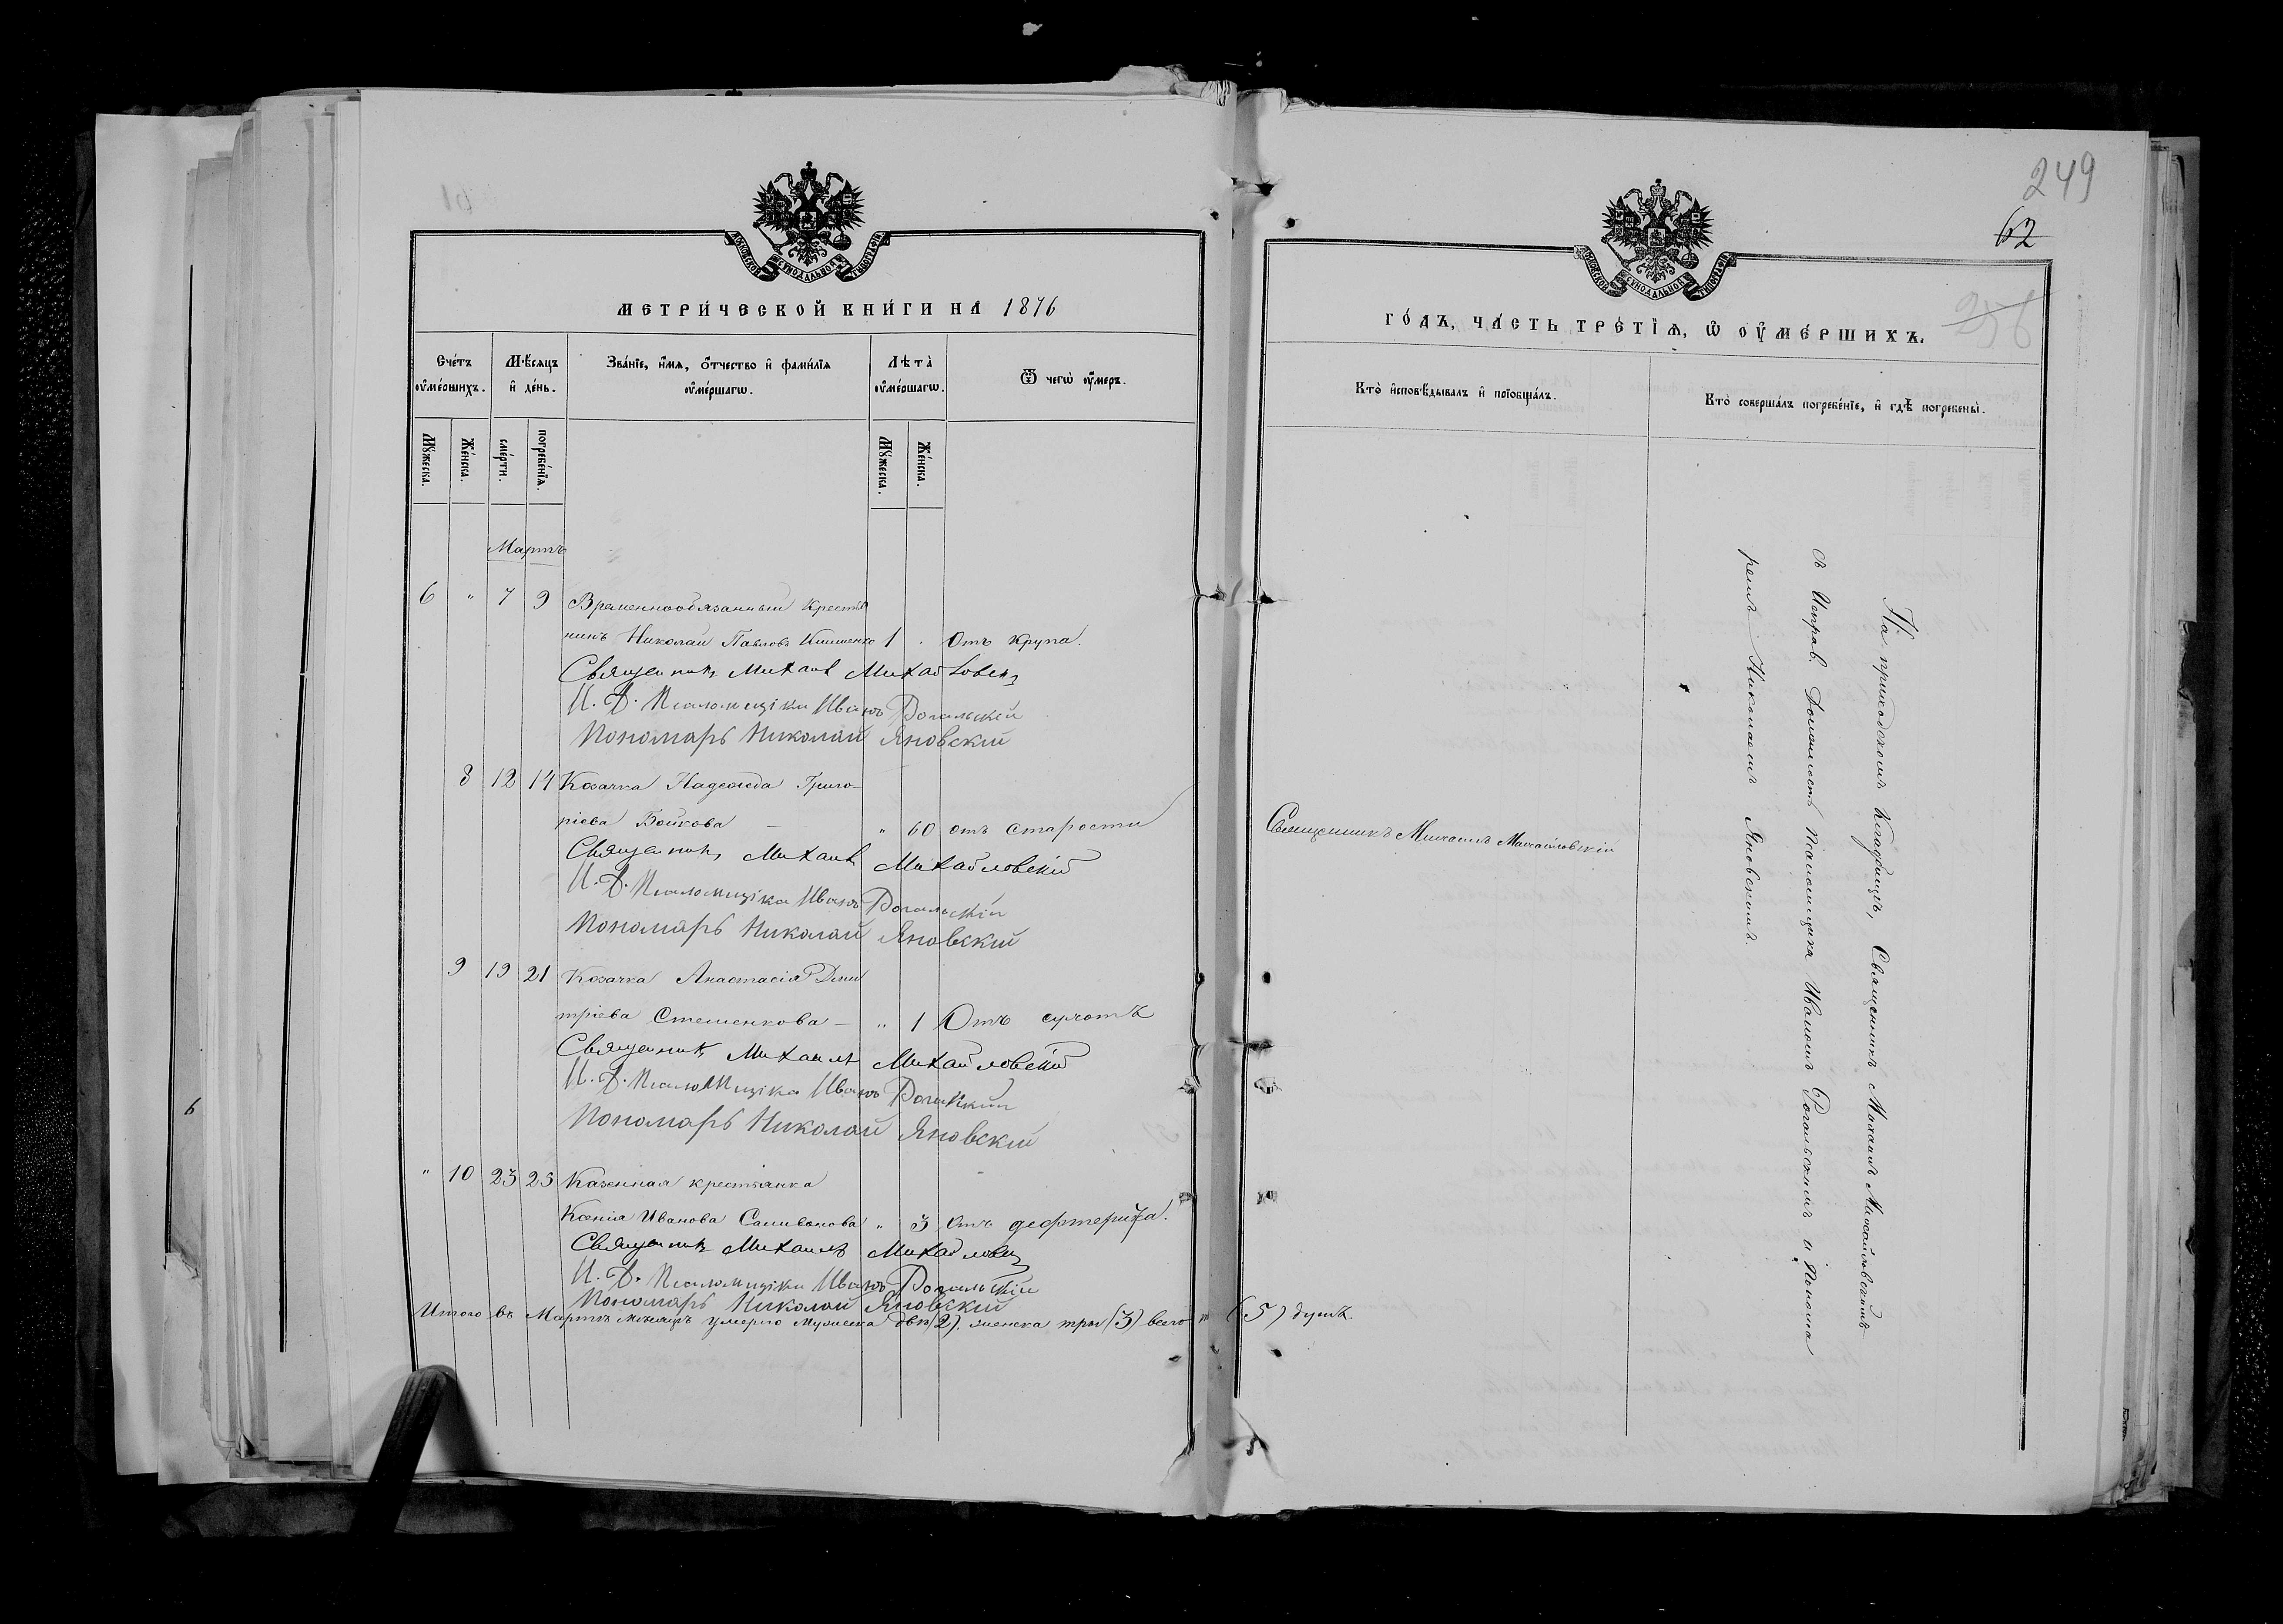 МОСКОВСКОЙ СУНОДАЛЬНОЙ ТИПОГРАФІИ
МЕТРИ́ЧЕСКОЙ КНИ́ГИ НА 1876
Сче́тъ оу҆ме́ршихъ.
Мѣ́сяцъ и҆ де́нь.
Зва́нїе, и҆́мя, ѻ҆́тчество и҆ фами́лїя оу҆ме́ршагѡ.
Лѣта̀ оу҆ме́ршагѡ.
Ѿ чегѡ̀ оу҆́меръ.
Мꙋ́жеска.
Же́нска.
сме́рти.
погребе́нїѧ.
Мꙋ́жеска.
Же́нска.
Мартъ
6 " 7 9 Временнообязанный крестья
нинъ Николай Павловъ 1 . Отъ крупа.
Священникъ Михаилъ Михайловскій
И. Д. Псаломщика Иванъ Рогальскій
Пономарь Николай Яновскій
8 12 14 Козачка Надежда Григо-
ріева Бойкова — " 60 отъ старости
Священникъ Михаилъ Михайловскій
И. Д. Псаломщика Иванъ Рогальскій
Пономарь Николай Яновскій
9 19 21 Козачка Анастасія Дми
тріева Стешенкова — " 1 Отъ сухотъ
Священникъ Михаилъ Михайловскій
И. Д. Псаломщика Иванъ Рогальскій
Пономарь Николай Яновскій
" 10 23 25 Казенная крестьянка
Ксенія Иванова Селивонова " 3 Отъ дефтерита.
Священникъ Михаилъ Михайловскій
И. Д. Псаломщика Иванъ Рогальскій
Пономарь Николай Яновскій
Итого въ Мартѣ мѣсяцѣ умерло мужеска два (2). женска три (3) всего (5) душъ.
249
62
МОСКОВСКОЙ СУНОДАЛЬНОЙ ТИПОГРАФІИ
ГО́ДЪ, ЧА́СТЬ ТРЕ́ТЇѦ, Ѡ҆ ОУ҆МЕ́РШИХЪ.
Кто̀ и҆сповѣ́дывалъ и҆ прїобща́лъ.
Кто̀ соверша́лъ погребе́нїе, и҆ гдѣ̀ погребены̀.
Священникъ Михаилъ Михайловскій
На приходскомъ кладбищѣ, Священникъ Михаилъ Михайловскій
съ Исправ. Должность Псаломщика Иваномъ Рогальскимъ и Понома
ремъ Николаемъ Яновскимъ.
6